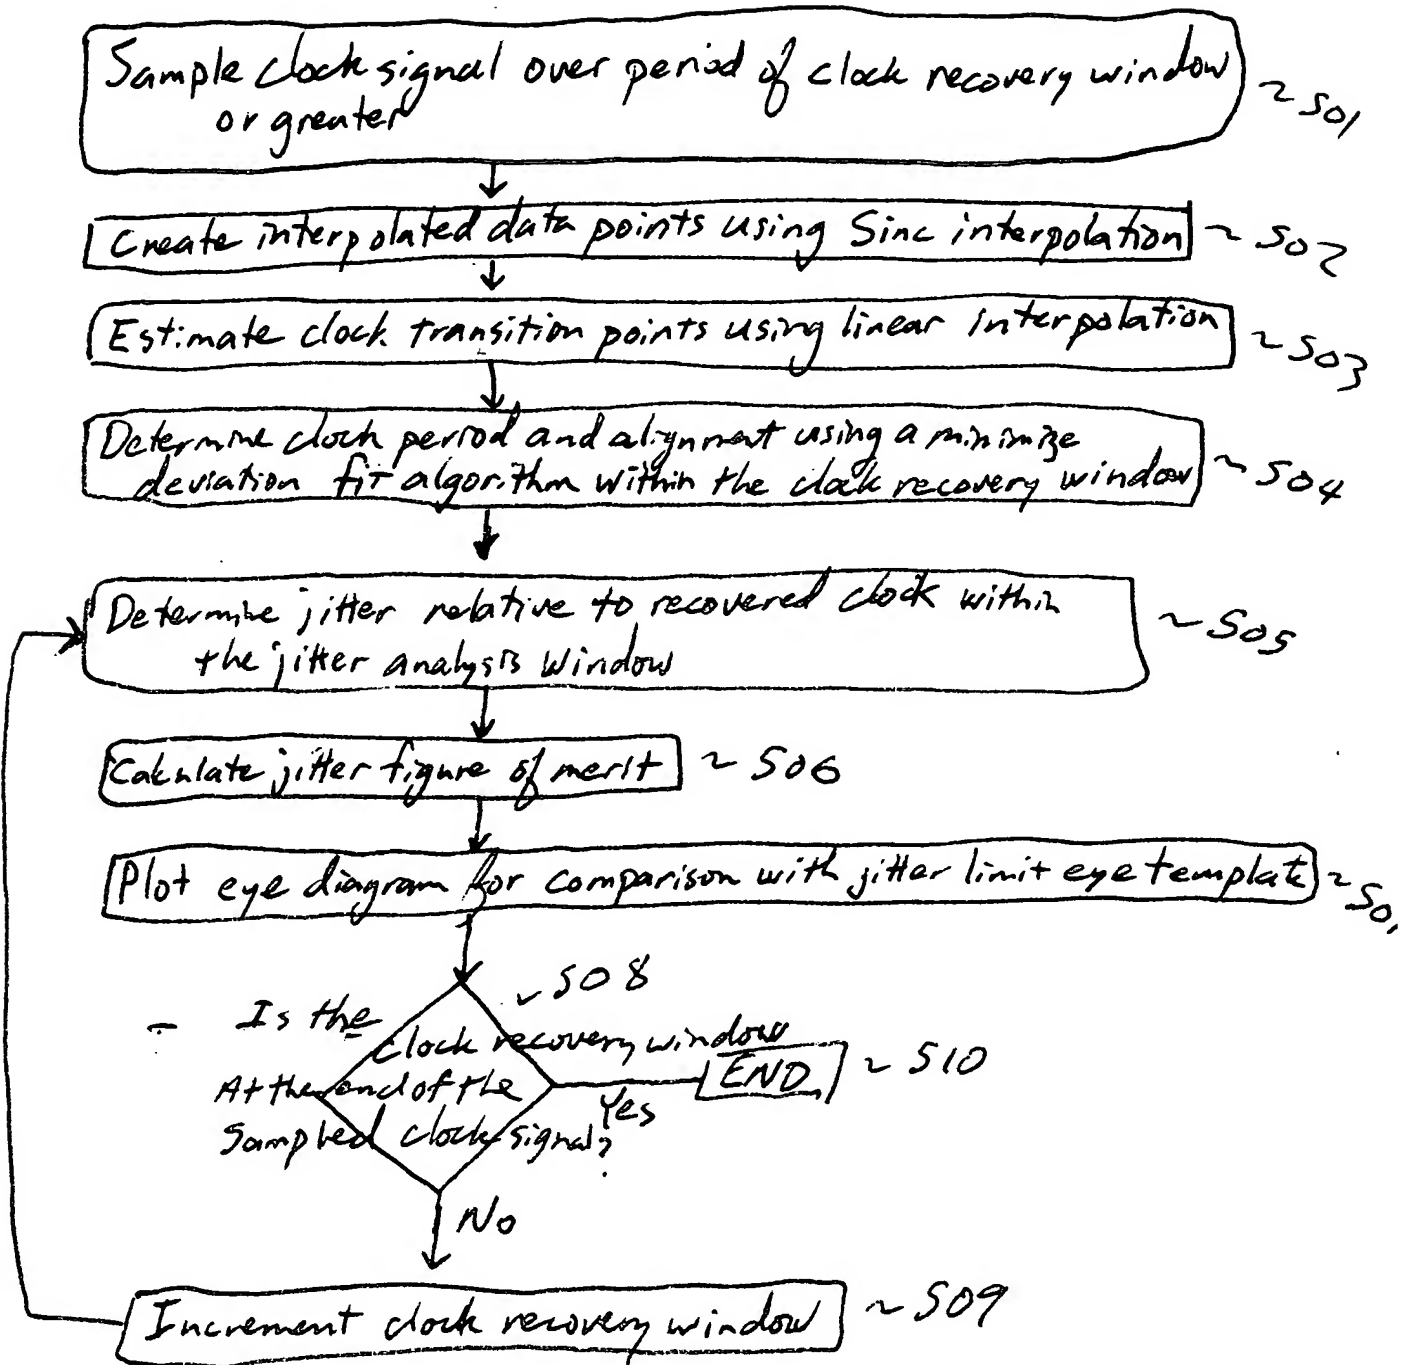 Sample clock signal over period of clock recovery window ~ S01
or greater
Create interpolated data points using Sinc interpolation ~ S02
Estimate clock transition points using linear interpolation ~ S03
Determine clock period and alignment using a minimize
deviation fit algorithm within the clock recovery window ~ S04
Determine jitter relative to recovered clock within ~ S05
the jitter analysis window
Calculate jitter figure of merit ~ S06
Plot eye diagram for comparison with jitter limit eye template ~
S08
Is the clock recovery window
At the end of the
Sampled clock signal?
Yes
END ~ S10
No
Increment clock recovery window ~ S09